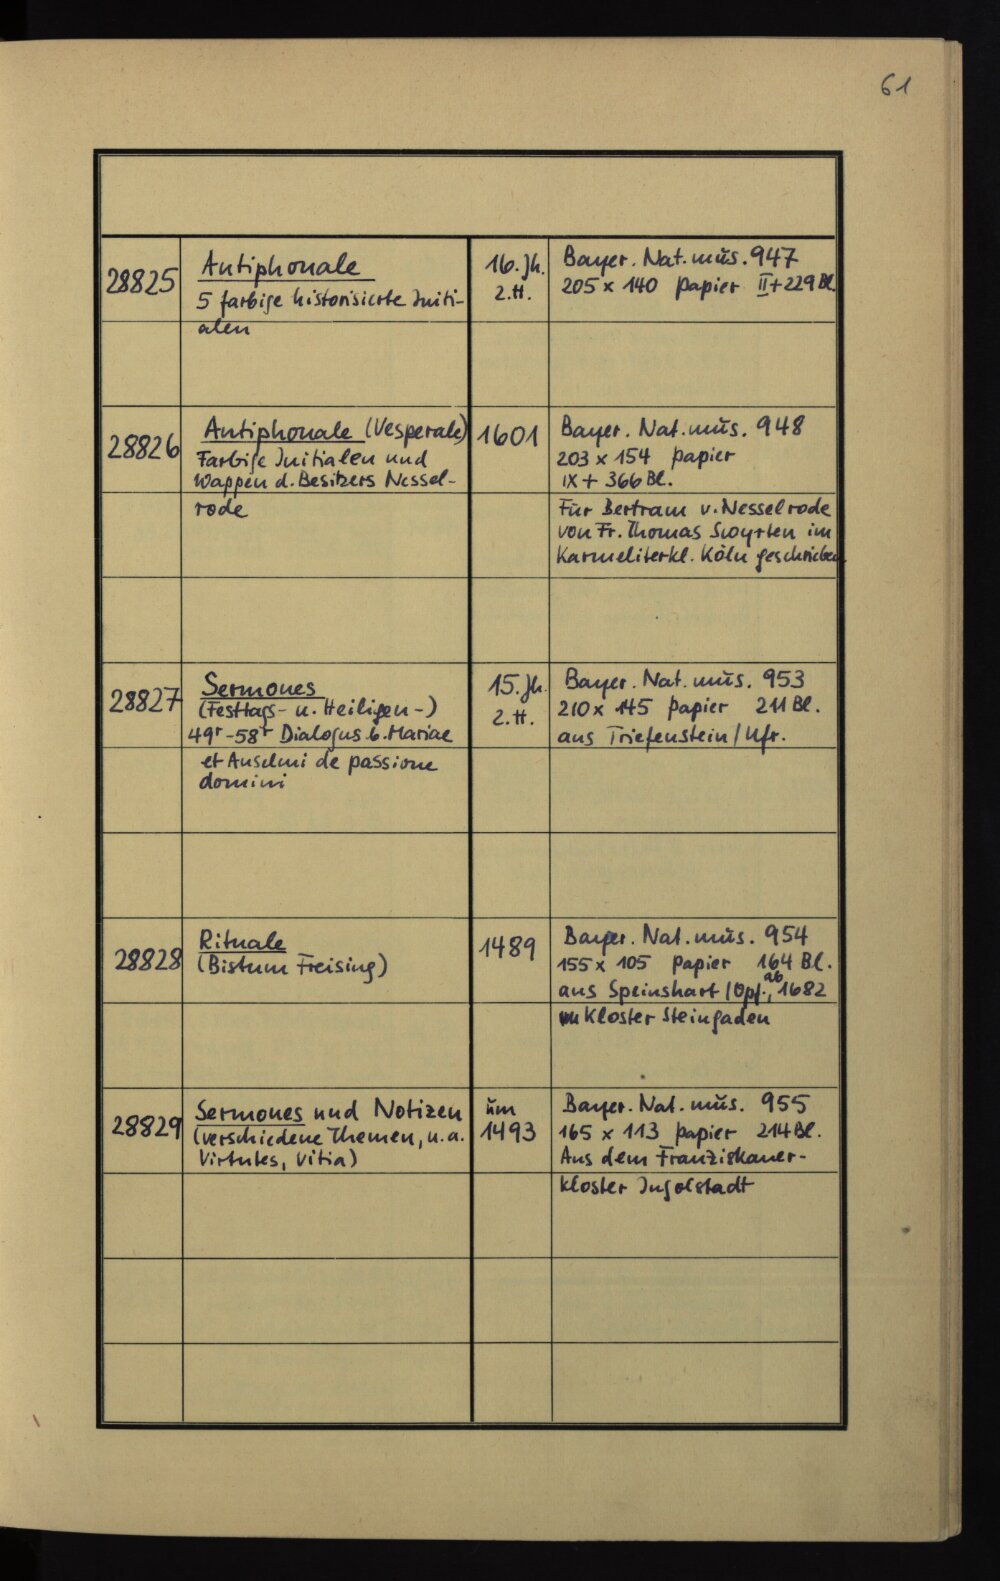 61
28825
Antiphonale
5 farbige historisierte Initi-
alen
16. Jh.
2. H.
Bayer. Nat. mus. 947
205 x 140 Papier II+229 Bl.
28826
Antiphonale (Vesperale)
Farbige Initialen und
Wappen d. Besitzers Nessel-
rode
1601
Bayer. Nat. mus. 948
203 x 154 Papier
IX + 366 Bl.
Für Bertram v. Nesselrode
von Fr. Thomas Swyrten im
Karmeliterkl. Köln geschrieben.
28827
Sermones
(Festtags- u. Heiligen-)
49r-58r Dialogus b. Mariae
et Anselmi de passione
domini
15. Jh.
2. H.
Bayer. Nat. mus. 953
210 x 145 Papier 211 Bl.
aus Triefenstein/Ufr.
28828
Rituale
(Bistum Freising)
1489
Bayer. Nat. mus. 954
155 x 105 Papier 164 Bl.
aus Speinshart/Opf., ab 1682
im Kloster Steingaden
28829
Sermones und Notizen
(verschiedene Themen, u.a.
Virtutes, Vitia)
um
1493
Bayer. Nat. mus. 955
165 x 113 Papier 214 Bl.
Aus dem Franziskaner-
kloster Ingolstadt